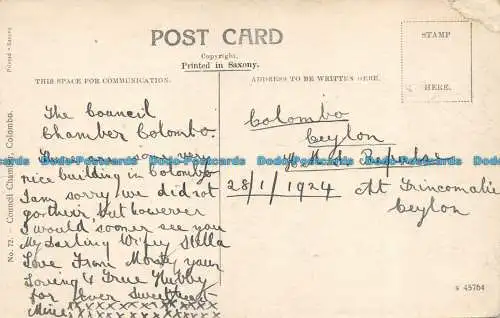 POST CARD
Copyright.
Printed in Saxony.
THIS SPACE FOR COMMUNICATION.
ADDRESS TO BE WRITTEN HERE.
STAMP
HERE.
Printed - Saxony
No. 72. - Council Chamber, Colombo.
The Council
Chamber Colombo.
There are some very
nice building in Colombo
I am sorry we did not
go their, but however
I would sooner see you
My Darling Wifey Stella
Love From Monty your
Loving & True Hubby
for Ever Sweetheart
Mine xxxxxxxxxxxxx
Colombo
Ceylon
H.M.S. Repulse
28/1/1924 At Trincomalie
Ceylon
s 45764